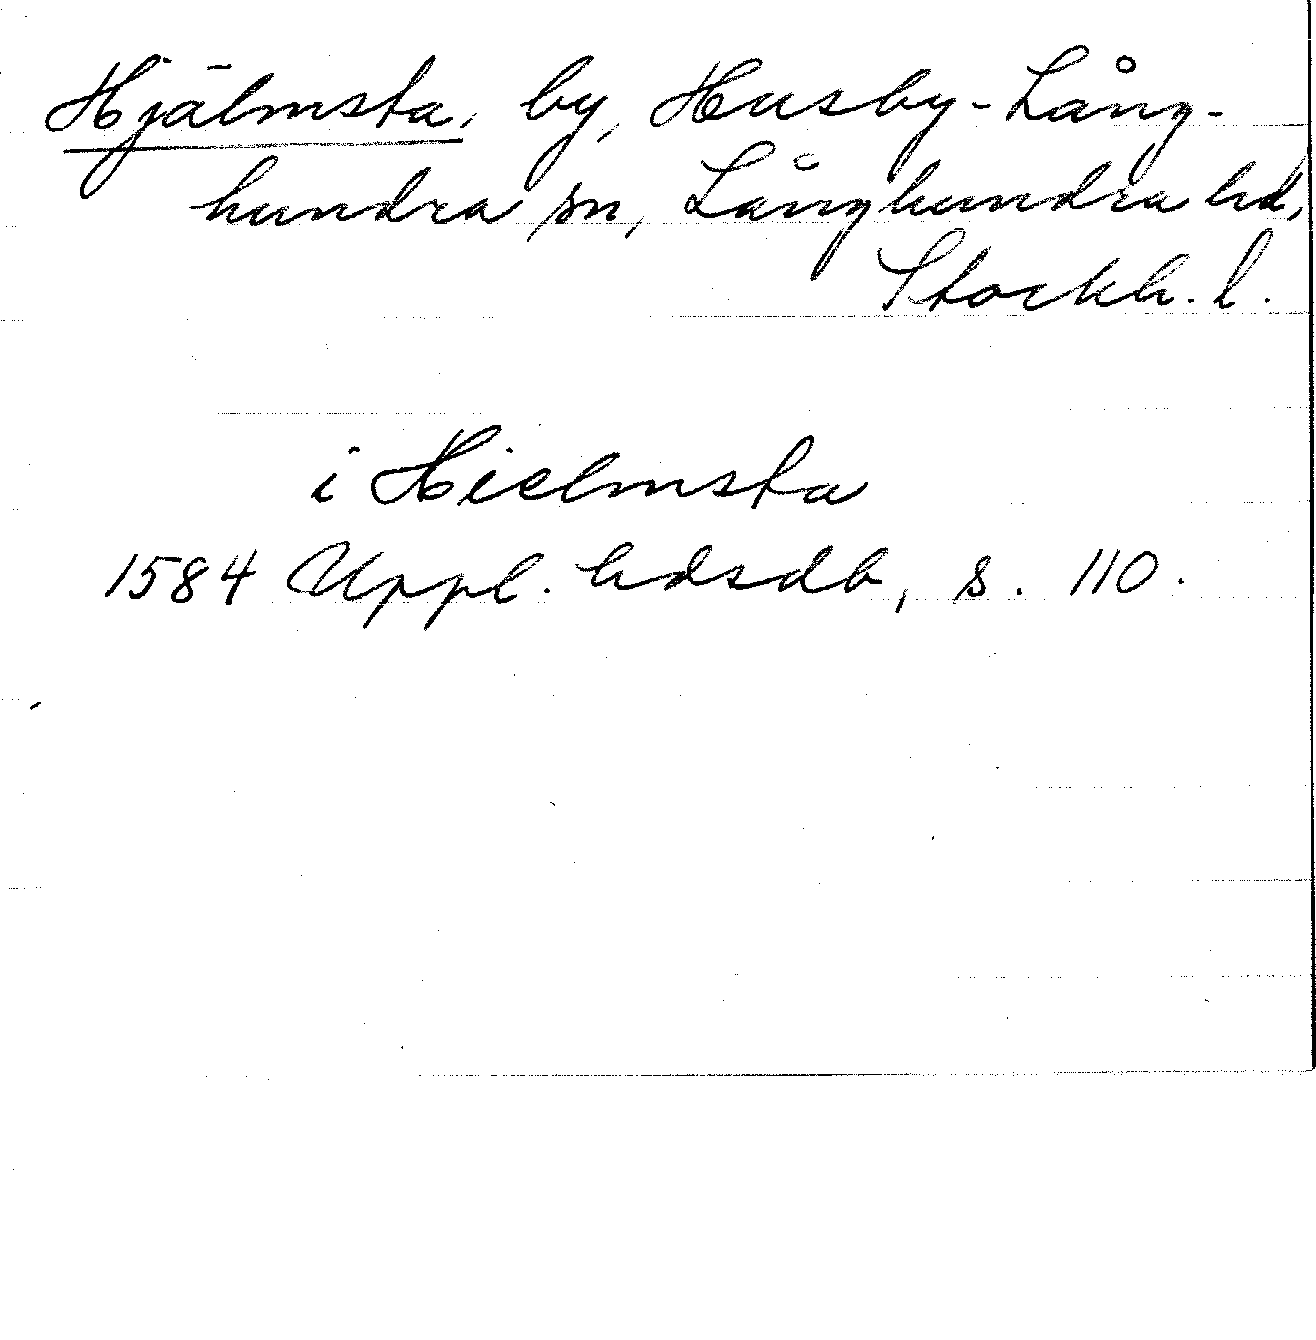 Hjälmsta, by, Husby-Lång-
hundra sn, Långhundra hd,
Stockh. l.
i Hielmsta
1584 Uppl. hdsdb, s. 110.